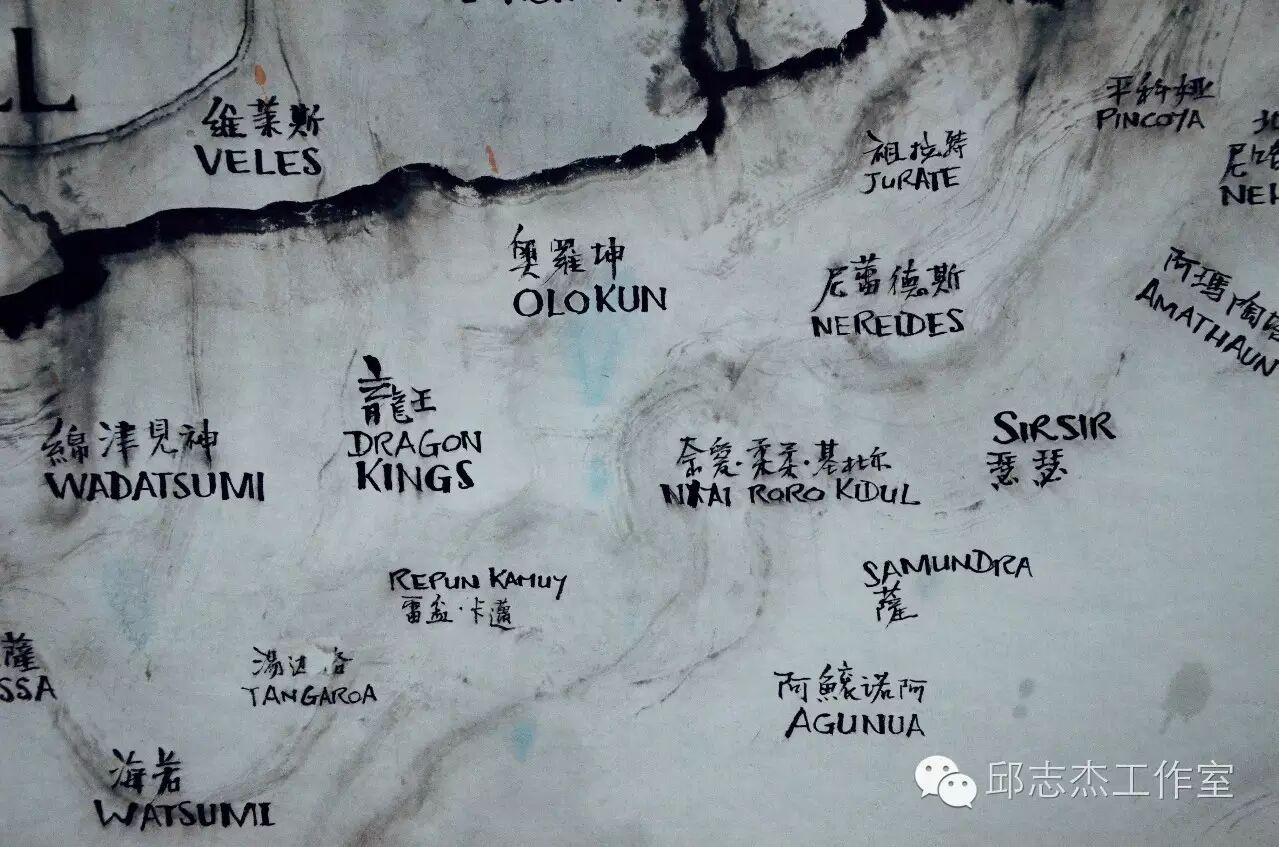 LL
平科娅
PINCOYA
维莱斯
VELES
祖拉特
JURATE
尼哈
NEH
奥羅坤
OLOKUN
尼蕾德斯
NEREIDES
阿瑪陶
AMATHAUN
龍王
DRAGON
KINGS
綿津見神
WADATSUMI
奈愛·柔柔·基杜尔
NYAI RORO KIDUL
SIRSIR
瑟瑟
REPUN KAMUY
雷盆·卡邁
SAMUNDRA
薩
薩
SSA
湯
TANGAROA
阿 诺阿
AGUNUA
海若
WATSUMI
邱志杰工作室